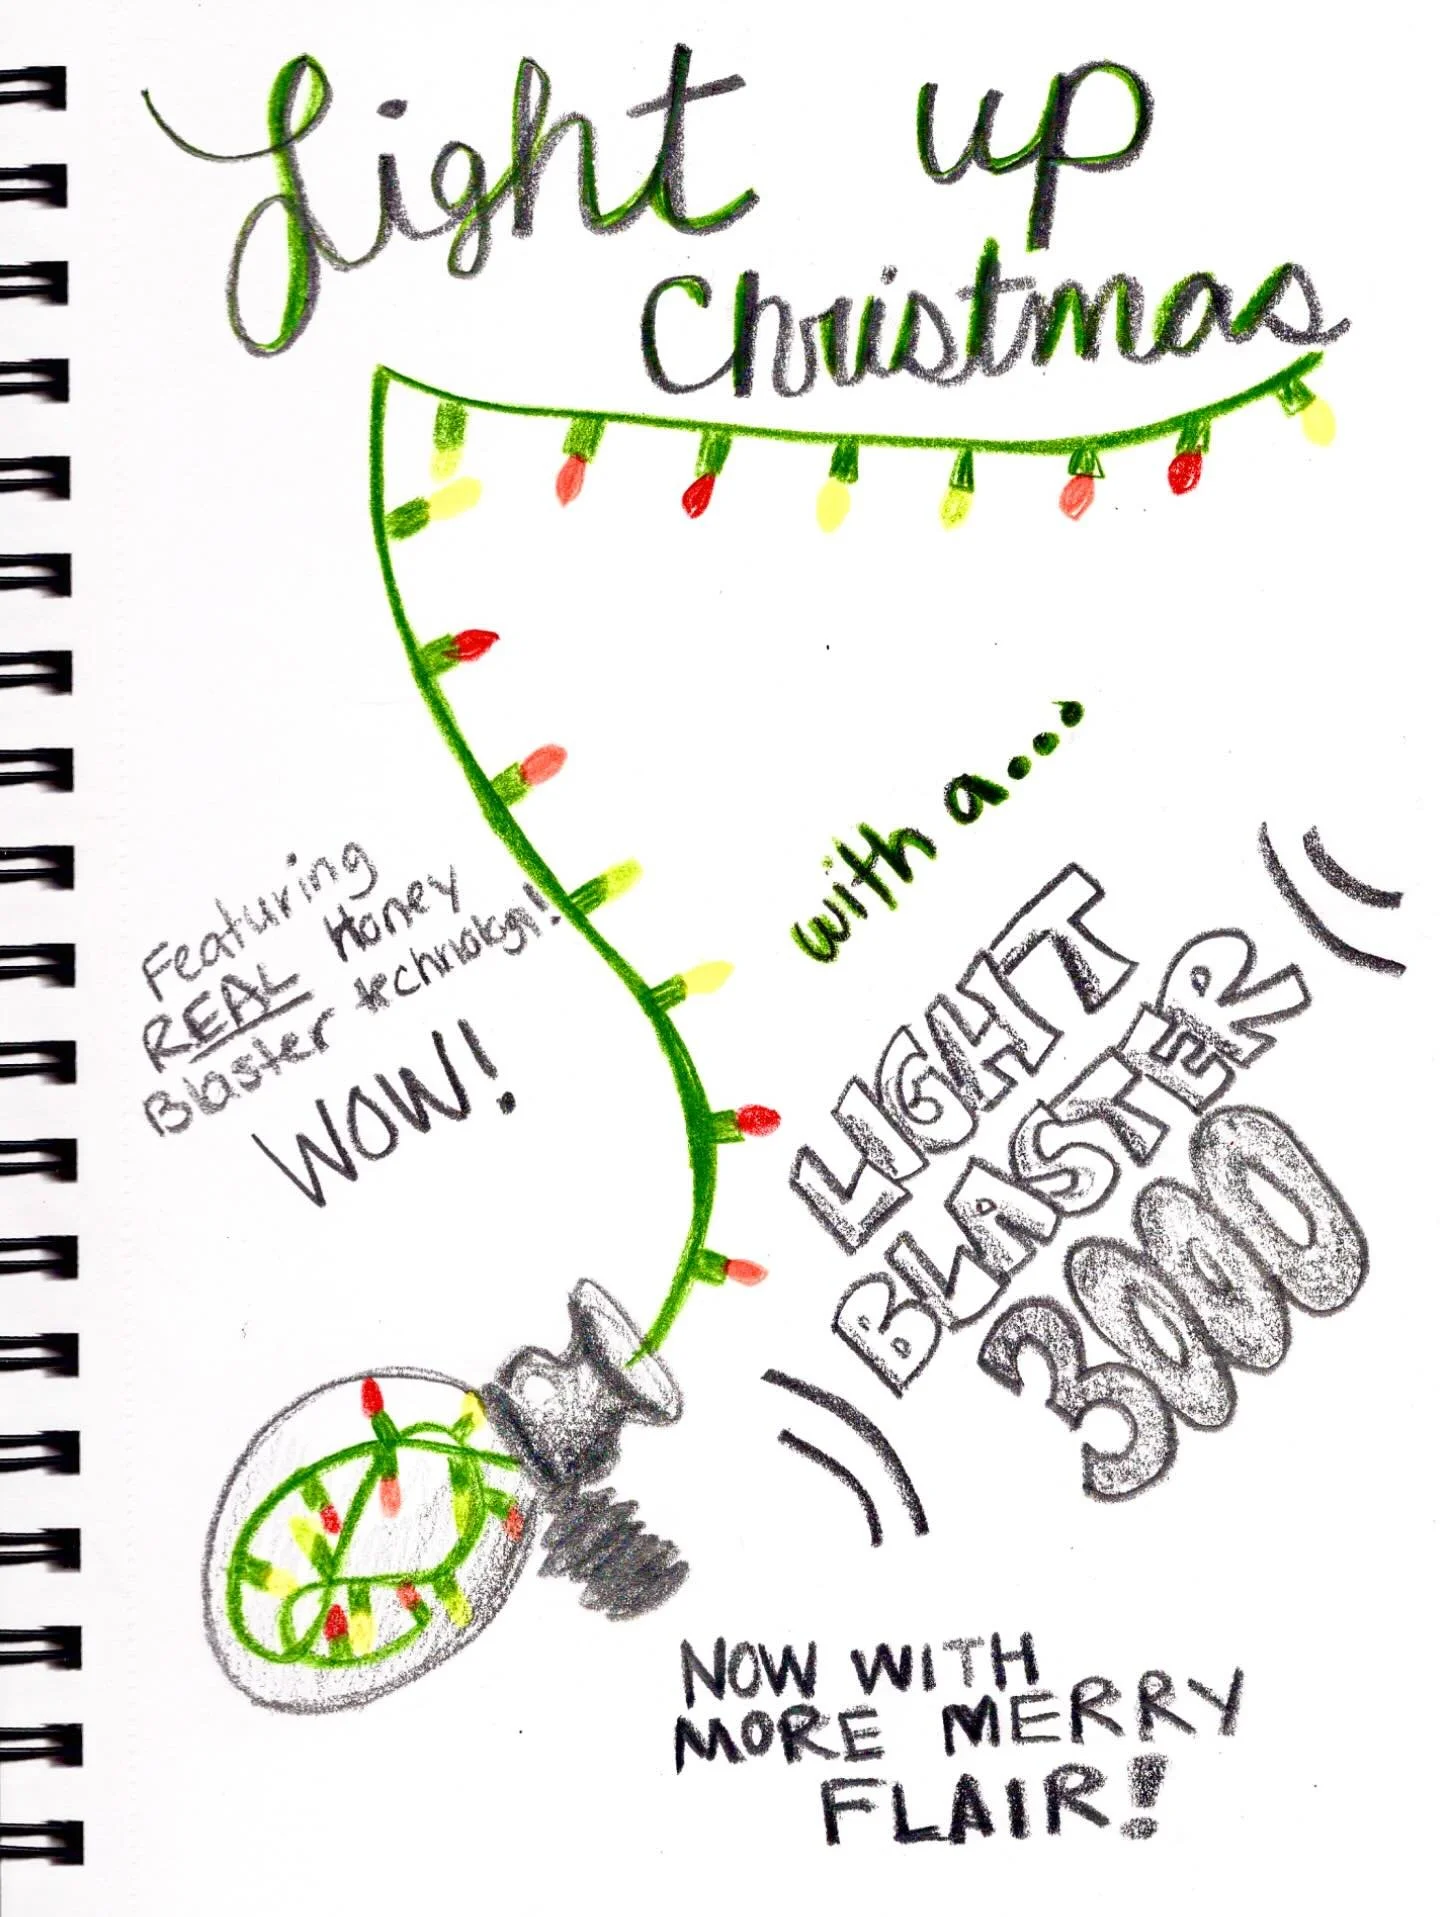 Light up
Christmas
with a....
Featuring
REAL Honey
Blaster technology!
WOW!
LIGHT
BLASTER
3000
NOW WITH
MORE MERRY
FLAIR!